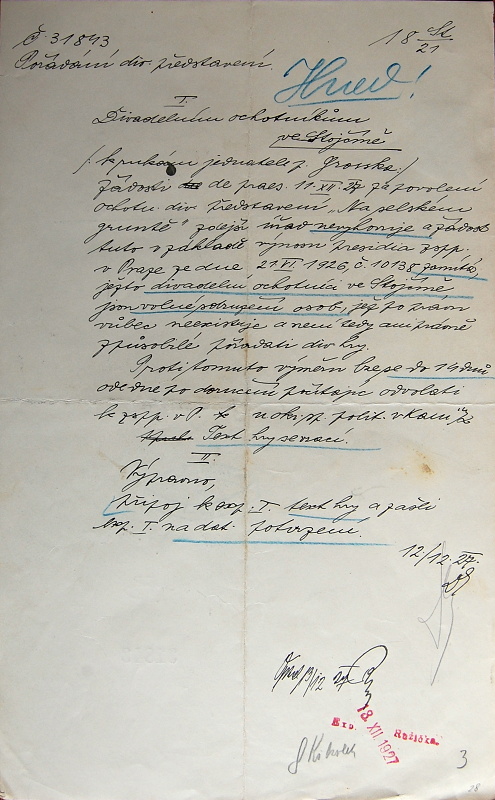 Č 31843
18 St/21
Pořádání div. představení.
Hned!
I.
Divadelním ochotníkům
ve Stojčíně
/: k rukám jednatele p. Grosska :/
žádosti de praes. 11. XII. 27 za povolení
ochotn. div. představení „Na selském
gruntě" zdejší úřad nevyhovuje a žádost
tuto v základě výnosu presidia zspp.
v Praze ze dne 21 VI. 1926, č. 10138 zamítá,
ježto divadelní ochotníci ve Stojčíně
jsou volné sdružení osob, jež po právu
vůbec neexistuje a není tedy ani právně
způsobilé pořádati div. hry.
Proti tomuto výměru lze se do 14 dnů
ode dne po doručení počítajíc odvolati
k zspp. v P. u okr. sp. polit. v Kam.
Text hry se vrací.
II.
Výpravno,
připoj k exp. I. text hry a zašli
exp. I. na dod. potvrzení.
12/12. 27.
13/12 27
18. XII. 1927
Exp. Růžička.
3
28